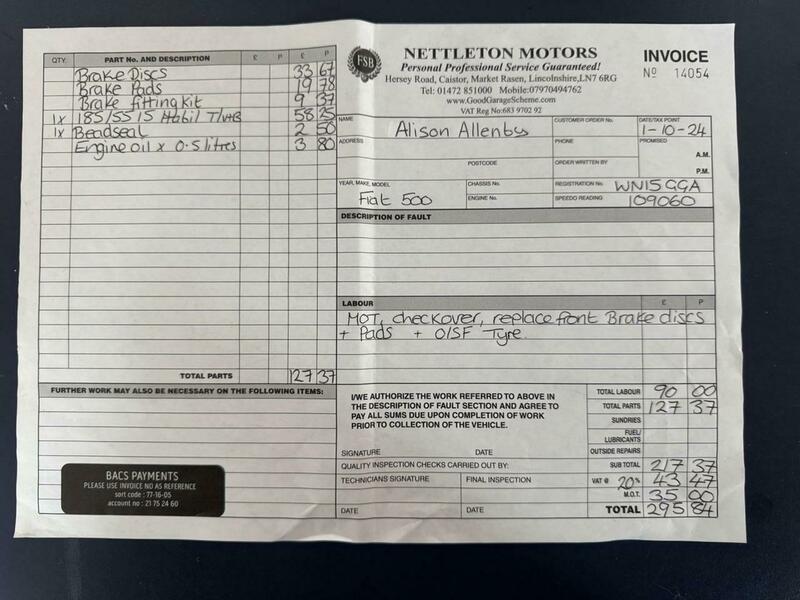 QTY. PART No. AND DESCRIPTION £ P £ P
Brake Discs 33 67
Brake Pads 19 78
Brake fitting kit 9 37
1x 185/55 15 Habil T/VB 58 25
1x Beadseal 2 50
Engine oil x 0.5 litres 3 80
TOTAL PARTS 127 37
FURTHER WORK MAY ALSO BE NECESSARY ON THE FOLLOWING ITEMS:
BACS PAYMENTS
PLEASE USE INVOICE NO AS REFERENCE
sort code : 77-16-05
account no : 21 75 24 60
FSB
NETTLETON MOTORS
Personal Professional Service Guaranteed!
Hersey Road, Caistor, Market Rasen, Lincolnshire,LN7 6RG
Tel: 01472 851000 Mobile:07970494762
www.GoodGarageScheme.com
VAT Reg No:683 9702 92
INVOICE
No 14054
NAME Alison Allenby CUSTOMER ORDER No. DATE/TAX POINT 1-10-24
ADDRESS PHONE PROMISED
A.M.
POSTCODE ORDER WRITTEN BY P.M.
YEAR, MAKE, MODEL Fiat 500 CHASSIS No. REGISTRATION No. WN15 GGA
ENGINE No. SPEEDO READING 109060
DESCRIPTION OF FAULT
LABOUR £ P
MOT, checkover, replace front Brake discs
+ Pads + O/SF Tyre.
I/WE AUTHORIZE THE WORK REFERRED TO ABOVE IN
THE DESCRIPTION OF FAULT SECTION AND AGREE TO
PAY ALL SUMS DUE UPON COMPLETION OF WORK
PRIOR TO COLLECTION OF THE VEHICLE.
SIGNATURE DATE
QUALITY INSPECTION CHECKS CARRIED OUT BY:
TECHNICIANS SIGNATURE FINAL INSPECTION
DATE DATE
TOTAL LABOUR 90 00
TOTAL PARTS 127 37
SUNDRIES
FUEL/
LUBRICANTS
OUTSIDE REPAIRS
SUB TOTAL 217 37
VAT @ 20% 43 47
M.O.T. 35 00
TOTAL 295 84